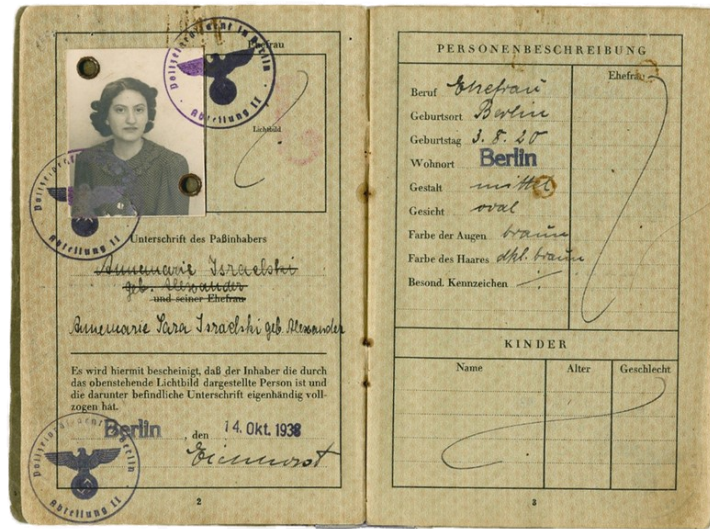 Ehefrau
Polizeipräsident in Berlin
Abteilung II
Lichtbild
Polizeipräsident in Berlin
Abteilung II
Unterschrift des Paßinhabers
Annemarie Israelski
geb. Alexander
und seiner Ehefrau
Annemarie Sara Israelski geb. Alexander
Es wird hiermit bescheinigt, daß der Inhaber die durch
das obenstehende Lichtbild dargestellte Person ist und
die darunter befindliche Unterschrift eigenhändig voll-
zogen hat.
Berlin, den 14. Okt. 1938
Polizeipräsident in Berlin
Abteilung II
2
PERSONENBESCHREIBUNG
Ehefrau
Beruf Ehefrau
Geburtsort Berlin
Geburtstag 3. 8. 20
Wohnort Berlin
Gestalt mittel
Gesicht oval
Farbe der Augen braun
Farbe des Haares dkl. braun
Besond. Kennzeichen
KINDER
Name Alter Geschlecht
3